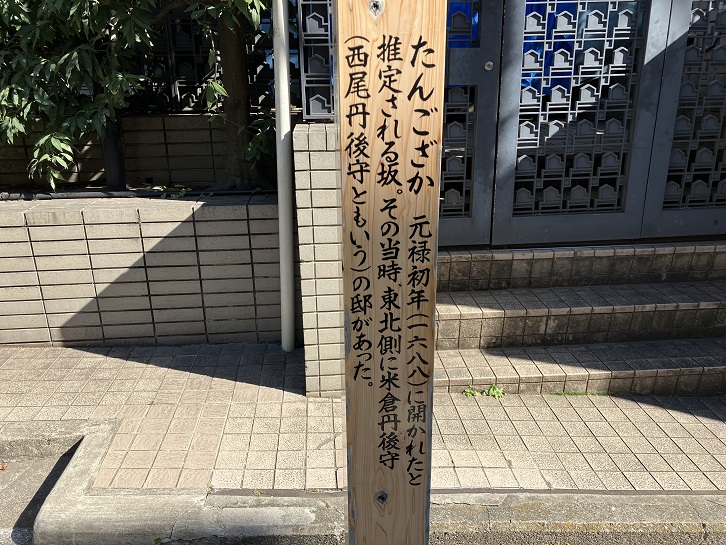 たんござか　元禄初年(一六八八)に開かれたと
推定される坂。その当時、東北側に米倉丹後守
(西尾丹後守ともいう)の邸があった。